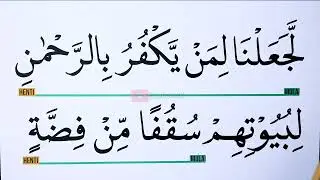 لَّجَعَلْنَا لِمَنْ يَّكْفُرُ بِالرَّحْمٰنِ
HENTI MULA
لِبُيُوْتِهِمْ سُقُفًا مِّنْ فِضَّةٍ
HENTI MULA